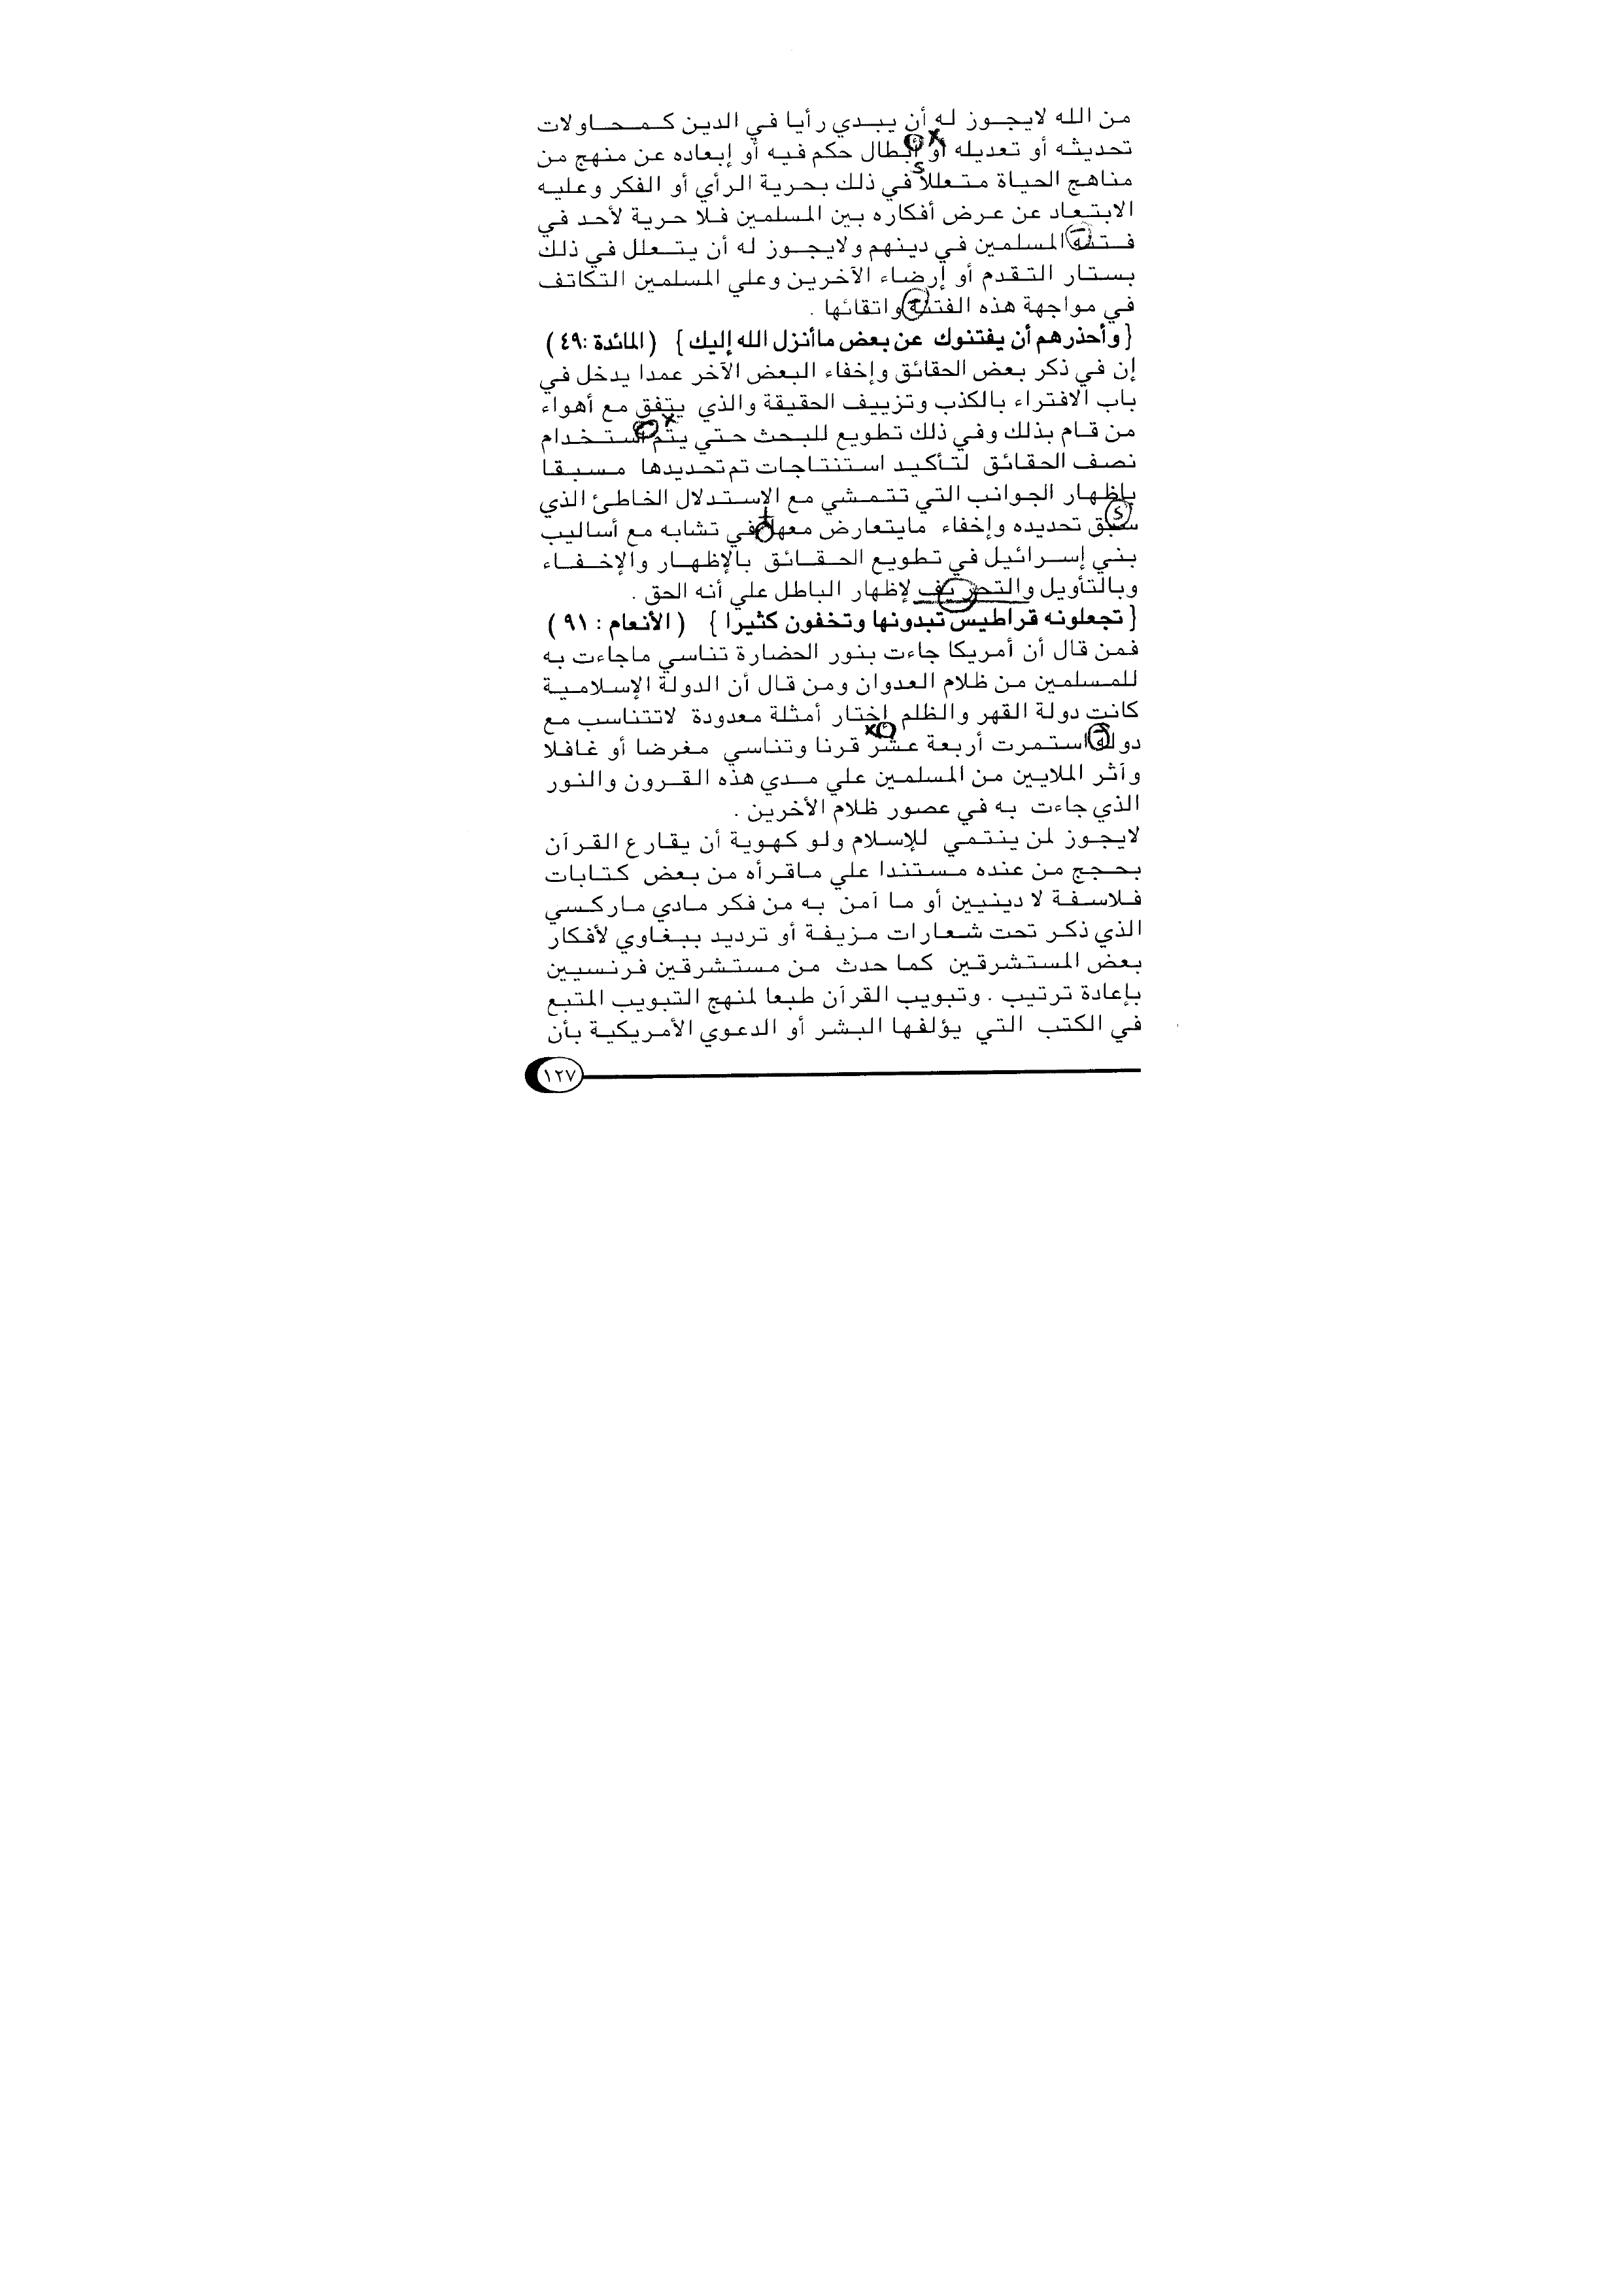 من الله لايجوز له أن يبدي رأيا في الدين كمحاولات
تحديثه أو تعديله أو أبطال حكم فيه أو إبعاده عن منهج من
مناهج الحياة متعللا في ذلك بحرية الرأي أو الفكر وعليه
الابتعاد عن عرض أفكاره بين المسلمين فلا حرية لأحد في
فتنة المسلمين في دينهم ولايجوز له أن يتعلل في ذلك
بستار التقدم أو إرضاء الآخرين وعلي المسلمين التكاتف
في مواجهة هذه الفتنة واتقائها .
{ وأحذرهم أن يفتنوك عن بعض ماأنزل الله إليك } ( المائدة :٤٩ )
إن في ذكر بعض الحقائق وإخفاء البعض الآخر عمدا يدخل في
باب الافتراء بالكذب وتزييف الحقيقة والذي يتفق مع أهواء
من قام بذلك وفي ذلك تطويع للبحث حتي يتم استخدام
نصف الحقائق لتأكيد استنتاجات تم تحديدها مسبقا
بإظهار الجوانب التي تتمشي مع الإستدلال الخاطئ الذي
سبق تحديده وإخفاء مايتعارض معها في تشابه مع أساليب
بني إسرائيل في تطويع الحقائق بالإظهار والإخفاء
وبالتأويل والتحريف لإظهار الباطل علي أنه الحق .
{ تجعلونه قراطيس تبدونها وتخفون كثيرا } ( الأنعام : ٩١ )
فمن قال أن أمريكا جاءت بنور الحضارة تناسي ماجاءت به
للمسلمين من ظلام العدوان ومن قال أن الدولة الإسلامية
كانت دولة القهر والظلم إختار أمثلة معدودة لاتتناسب مع
دولة استمرت أربعة عشر قرنا وتناسي مغرضا أو غافلا
وآثر الملايين من المسلمين علي مدي هذه القرون والنور
الذي جاءت به في عصور ظلام الأخرين .
لايجوز لمن ينتمي للإسلام ولو كهوية أن يقارع القرآن
بحجج من عنده مستندا علي ماقرأه من بعض كتابات
فلاسفة لا دينيين أو ما آمن به من فكر مادي ماركسي
الذي ذكر تحت شعارات مزيفة أو ترديد ببغاوي لأفكار
بعض المستشرقين كما حدث من مستشرقين فرنسيين
بإعادة ترتيب . وتبويب القرآن طبعا لمنهج التبويب المتبع
في الكتب التي يؤلفها البشر أو الدعوي الأمريكية بأن
١٢٧